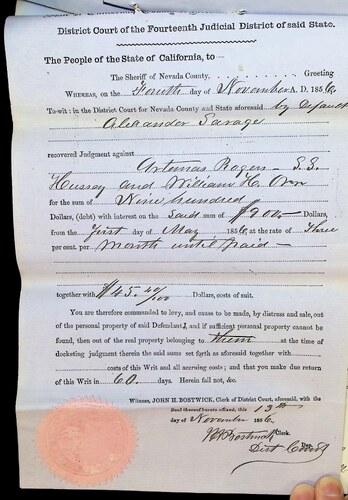 District Court of the Fourteenth Judicial District of said State.
The People of the State of California, to—
The Sheriff of Nevada County. . . . . . . . . . Greeting
WHEREAS, on the Fourth day of November A. D. 1856
To-wit: in the District Court for Nevada County and State aforesaid by Default
Alexander Savage
recovered Judgment against
Artemas Rogers — S. S.
Hussey and William H. Orn
for the sum of Nine hundred
Dollars, (debt) with interest on the said sum of $900 — Dollars,
from the first day of May 1856, at the rate of Three
per cent. per Month until paid —
together with $45.40/100 Dollars, costs of suit.
You are therefore commanded to levy, and cause to be made, by distress and sale, out
of the personal property of said Defendant, and if sufficient personal property cannot be
found, then out of the real property belonging to them at the time of
docketing judgment therein the said sums set forth as aforesaid together with
costs of this Writ and all accruing costs; and that you make due return
of this Writ in 60 days. Herein fail not, &c.
Witness, JOHN H. BOSTWICK, Clerk of District Court, aforesaid, with the
Seal thereof hereto affixed, this 13th
day of November 1856
JH Bostwick Clerk.
Dist Court